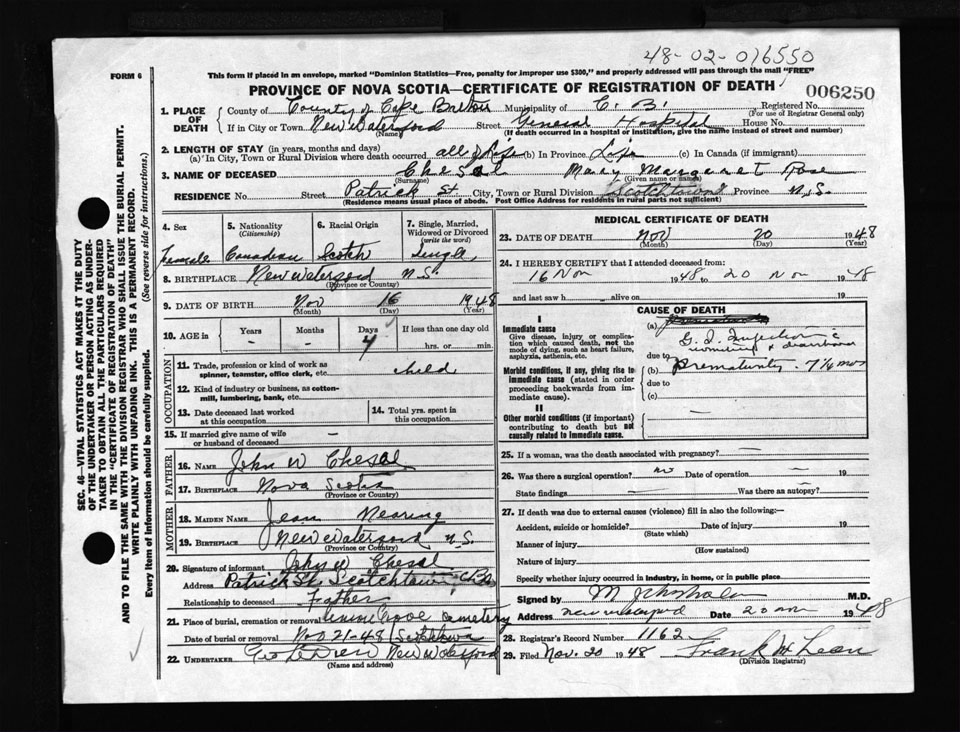 48-02-016550
FORM 6
This form if placed in an envelope, marked "Dominion Statistics—Free, penalty for improper use $300," and properly addressed will pass through the mail "FREE"
PROVINCE OF NOVA SCOTIA—CERTIFICATE OF REGISTRATION OF DEATH
006250
1. PLACE OF DEATH
County of County of Cape Breton Municipality of C. B. Registered No.
(For use of Registrar General only)
If in City or Town New Waterford Street General Hospital House No.
(Name) (If death occurred in a hospital or institution, give the name instead of street and number)
2. LENGTH OF STAY (in years, months and days)
(a) In City, Town or Rural Division where death occurred all of life (b) In Province Life (c) In Canada (if immigrant)
3. NAME OF DECEASED Chesal Mary Margaret Rose
(Surname) (Given name or names)
RESIDENCE No. Street Patrick St City, Town or Rural Division Scotchtown Province N.S.
(Residence means usual place of abode. Post Office Address for residents in rural parts not sufficient)
4. Sex 5. Nationality (Citizenship) 6. Racial Origin 7. Single, Married, Widowed or Divorced (write the word)
Female Canadian Scotch single
8. BIRTHPLACE New Waterford N.S.
(Province or Country)
9. DATE OF BIRTH Nov 16 1948
(Month) (Day) (Year)
10. AGE in Years Months Days If less than one day old
- - 4 hrs. or min.
OCCUPATION
11. Trade, profession or kind of work as spinner, teamster, office clerk, etc. child
12. Kind of industry or business, as cotton-mill, lumbering, bank, etc.
13. Date deceased last worked at this occupation 14. Total yrs. spent in this occupation
15. If married give name of wife or husband of deceased —
FATHER
16. NAME John W Chesal
17. BIRTHPLACE Nova Scotia
(Province or Country)
MOTHER
18. MAIDEN NAME Jean Nearing
19. BIRTHPLACE New Waterford N.S.
(Province or Country)
20. Signature of informant John W Chesal
Address Patrick St. Scotchtown C.B.
Relationship to deceased Father
21. Place of burial, cremation or removal Cemetery
Date of burial or removal Nov 21-48 Scotchtown
22. UNDERTAKER New Waterford
(Name and address)
MEDICAL CERTIFICATE OF DEATH
23. DATE OF DEATH Nov 20 1948
(Month) (Day) (Year)
24. I HEREBY CERTIFY that I attended deceased from:
16 Nov 1948 to 20 Nov 1948
and last saw h alive on 19
CAUSE OF DEATH
I
Immediate cause
Give disease, injury or complication which caused death, not the mode of dying, such as heart failure, asphyxia, asthenia, etc.
(a)
G. I. Infection c
vomiting & diarrhoea
due to
Morbid conditions, if any, giving rise to immediate cause (stated in order proceeding backwards from immediate cause).
(b) Prematurity - 7½ mos
due to
(c)
II
Other morbid conditions (if important) contributing to death but not causally related to immediate cause.
25. If a woman, was the death associated with pregnancy? —
26. Was there a surgical operation? no Date of operation — 19
State findings — Was there an autopsy? —
27. If death was due to external causes (violence) fill in also the following:—
Accident, suicide or homicide? Date of injury 19
(State which)
Manner of injury
(How sustained)
Nature of injury
Specify whether injury occurred in industry, in home, or in public place
Signed by M M.D.
Address New Waterford Date 20 Nov 1948
28. Registrar's Record Number 1162
29. Filed Nov. 20 1948 Frank McLean
(Division Registrar)
SEC. 46—VITAL STATISTICS ACT MAKES IT THE DUTY
OF THE UNDERTAKER OR PERSON ACTING AS UNDERTAKER TO OBTAIN ALL THE PARTICULARS REQUIRED
IN THE "CERTIFICATE OF REGISTRATION OF DEATH"
AND TO FILE THE SAME WITH THE DIVISION REGISTRAR WHO SHALL ISSUE THE BURIAL PERMIT.
WRITE PLAINLY WITH UNFADING INK. THIS IS A PERMANENT RECORD.
Every item of information should be carefully supplied. (See reverse side for instructions.)